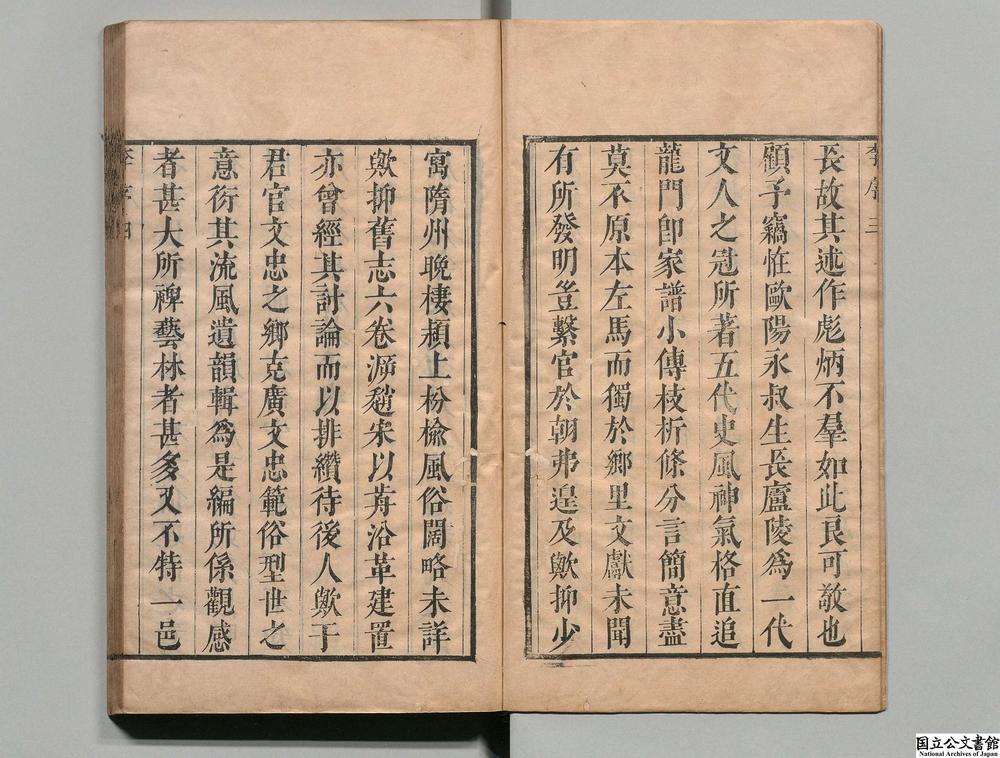 李序 三
長故其述作彪炳不羣如此良可敬也
顧予竊恠歐陽永叔生長廬陵爲一代
文人之冠所著五代史風神氣格直追
龍門卽家譜小傳枝析條分言簡意盡
莫不原本左馬而獨於鄉里文獻未聞
有所發明豈繫官於朝弗遑及歟抑少
寓隋州晚棲潁上枌楡風俗闊略未詳
歟抑舊志六卷溯趙宋以前沿革建置
亦曾經其討論而以排纘待後人歟于
君官文忠之鄉克廣文忠範俗型世之
意衍其流風遺韻輯爲是編所係觀感
者甚大所裨藝林者甚多又不特一邑
李序 四
国立公文書館
National Archives of Japan